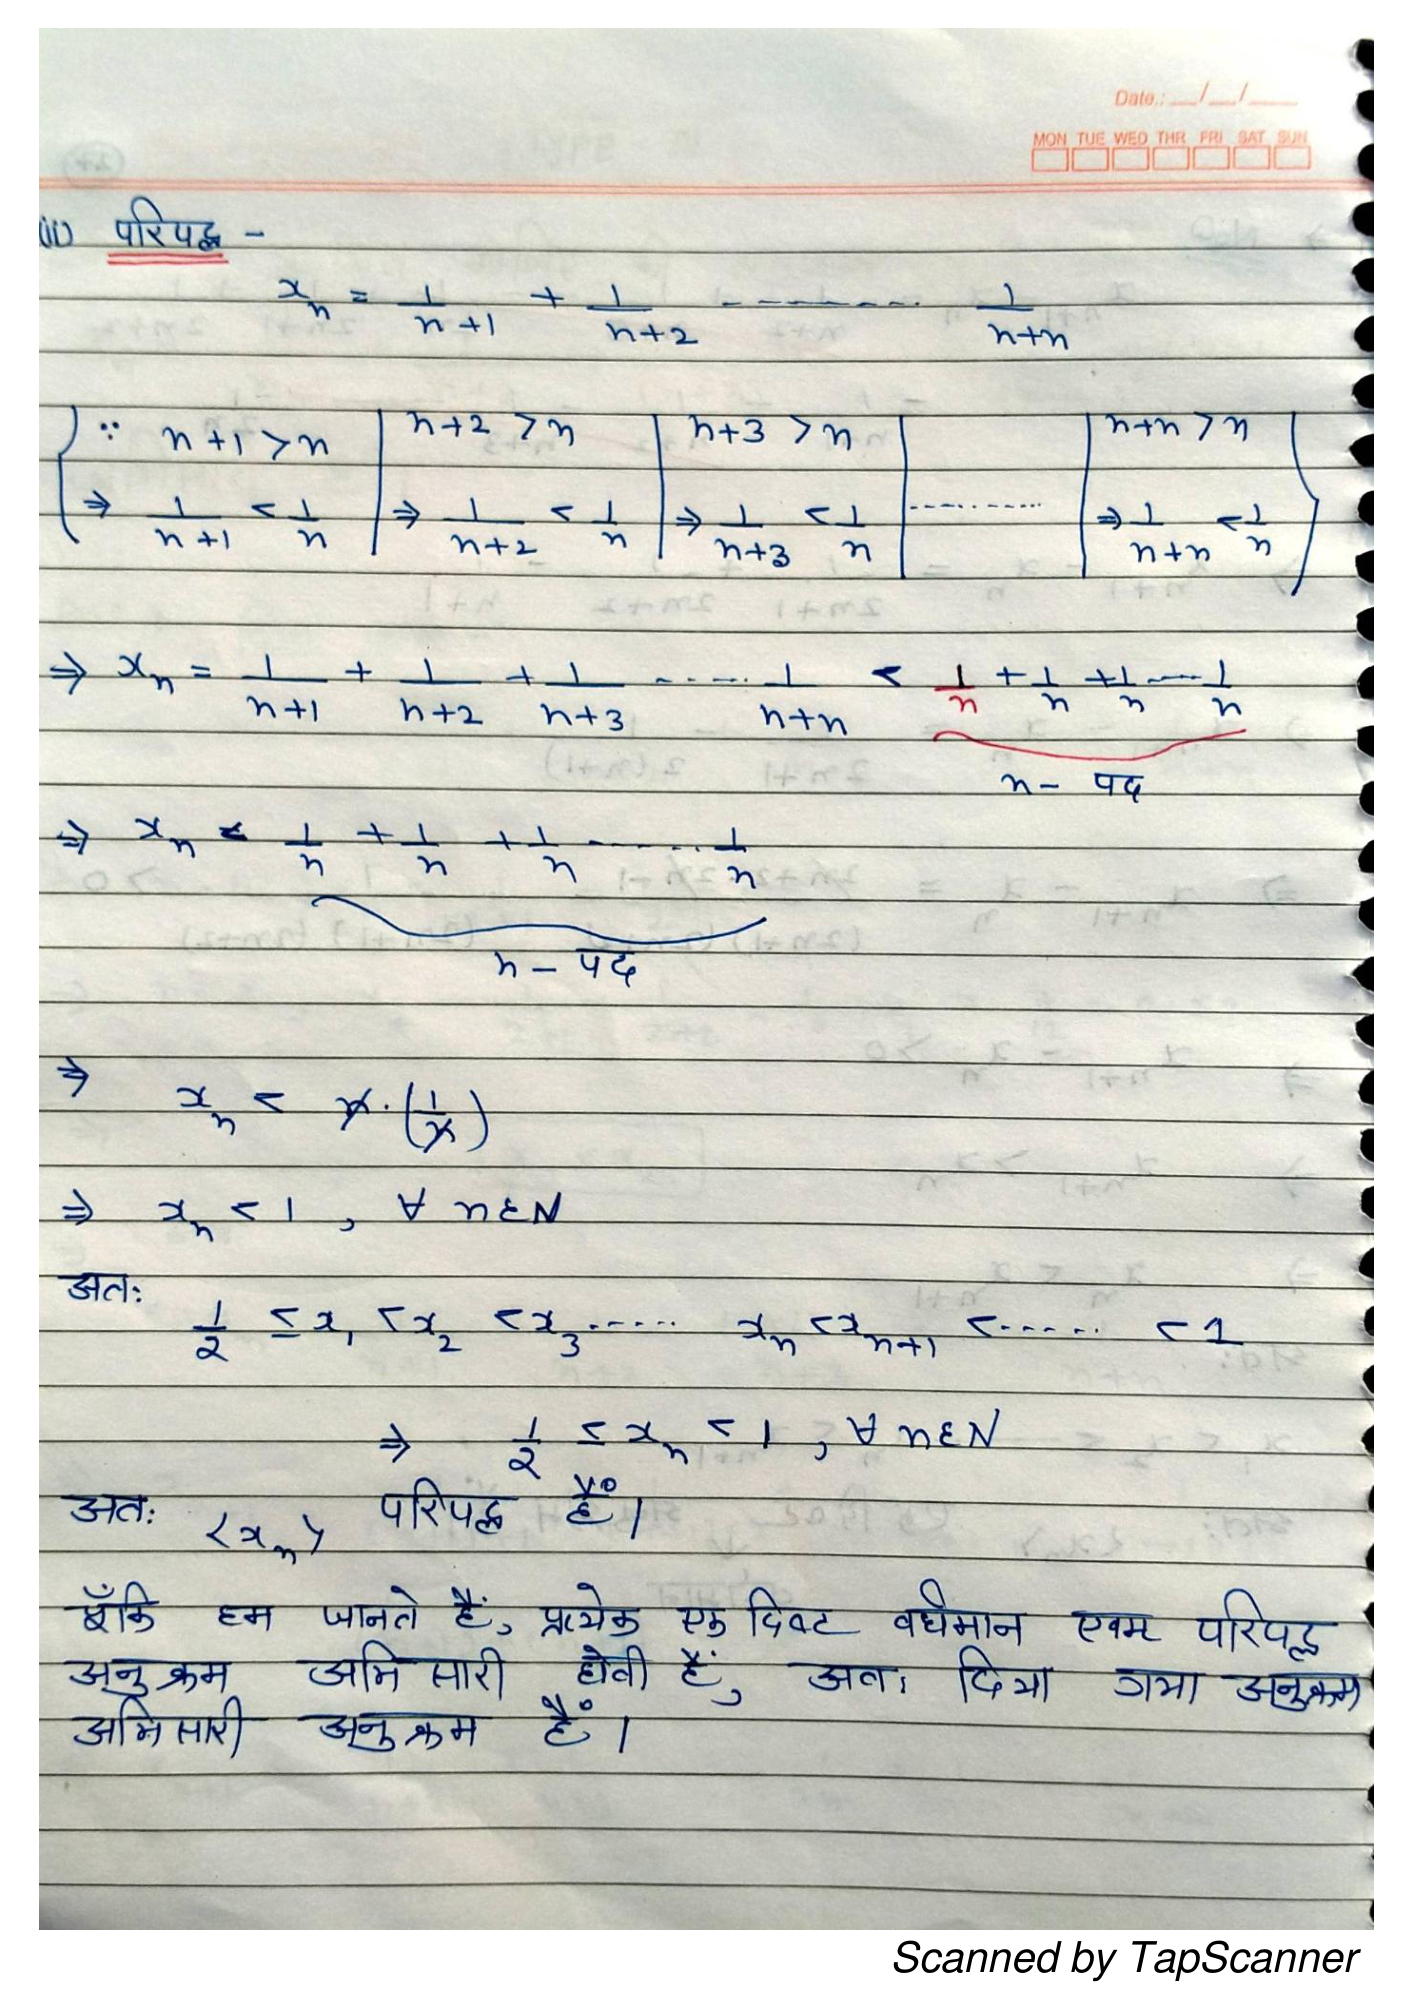 Date.: __/__/__
MON TUE WED THR FRI SAT SUN
(ii) परिबद्ध -
xₙ = 1/(n+1) + 1/(n+2) ------- 1/(n+n)
∵ n+1 > n | n+2 > n | n+3 > n | | n+n > n
⇒ 1/(n+1) < 1/n | ⇒ 1/(n+2) < 1/n | ⇒ 1/(n+3) < 1/n | ------- | ⇒ 1/(n+n) < 1/n
⇒ xₙ = 1/(n+1) + 1/(n+2) + 1/(n+3) ----- 1/(n+n) < 1/n + 1/n + 1/n ---- 1/n
n - पद
⇒ xₙ < 1/n + 1/n + 1/n ------ 1/n
n - पद
⇒ xₙ < n · (1/n)
⇒ xₙ < 1 , ∀ n∈N
अतः
1/2 ≤ x₁ < x₂ < x₃ ----- xₙ < xₙ₊₁ < ----- < 1
⇒ 1/2 ≤ xₙ < 1 , ∀ n∈N
अतः <xₙ> परिबद्ध है।
चूँकि हम जानते हैं, प्रत्येक एकदिष्ट वर्धमान एवम् परिबद्ध
अनुक्रम अभिसारी होती हैं, अतः दिया गया अनुक्रम
अभिसारी अनुक्रम है।
Scanned by TapScanner